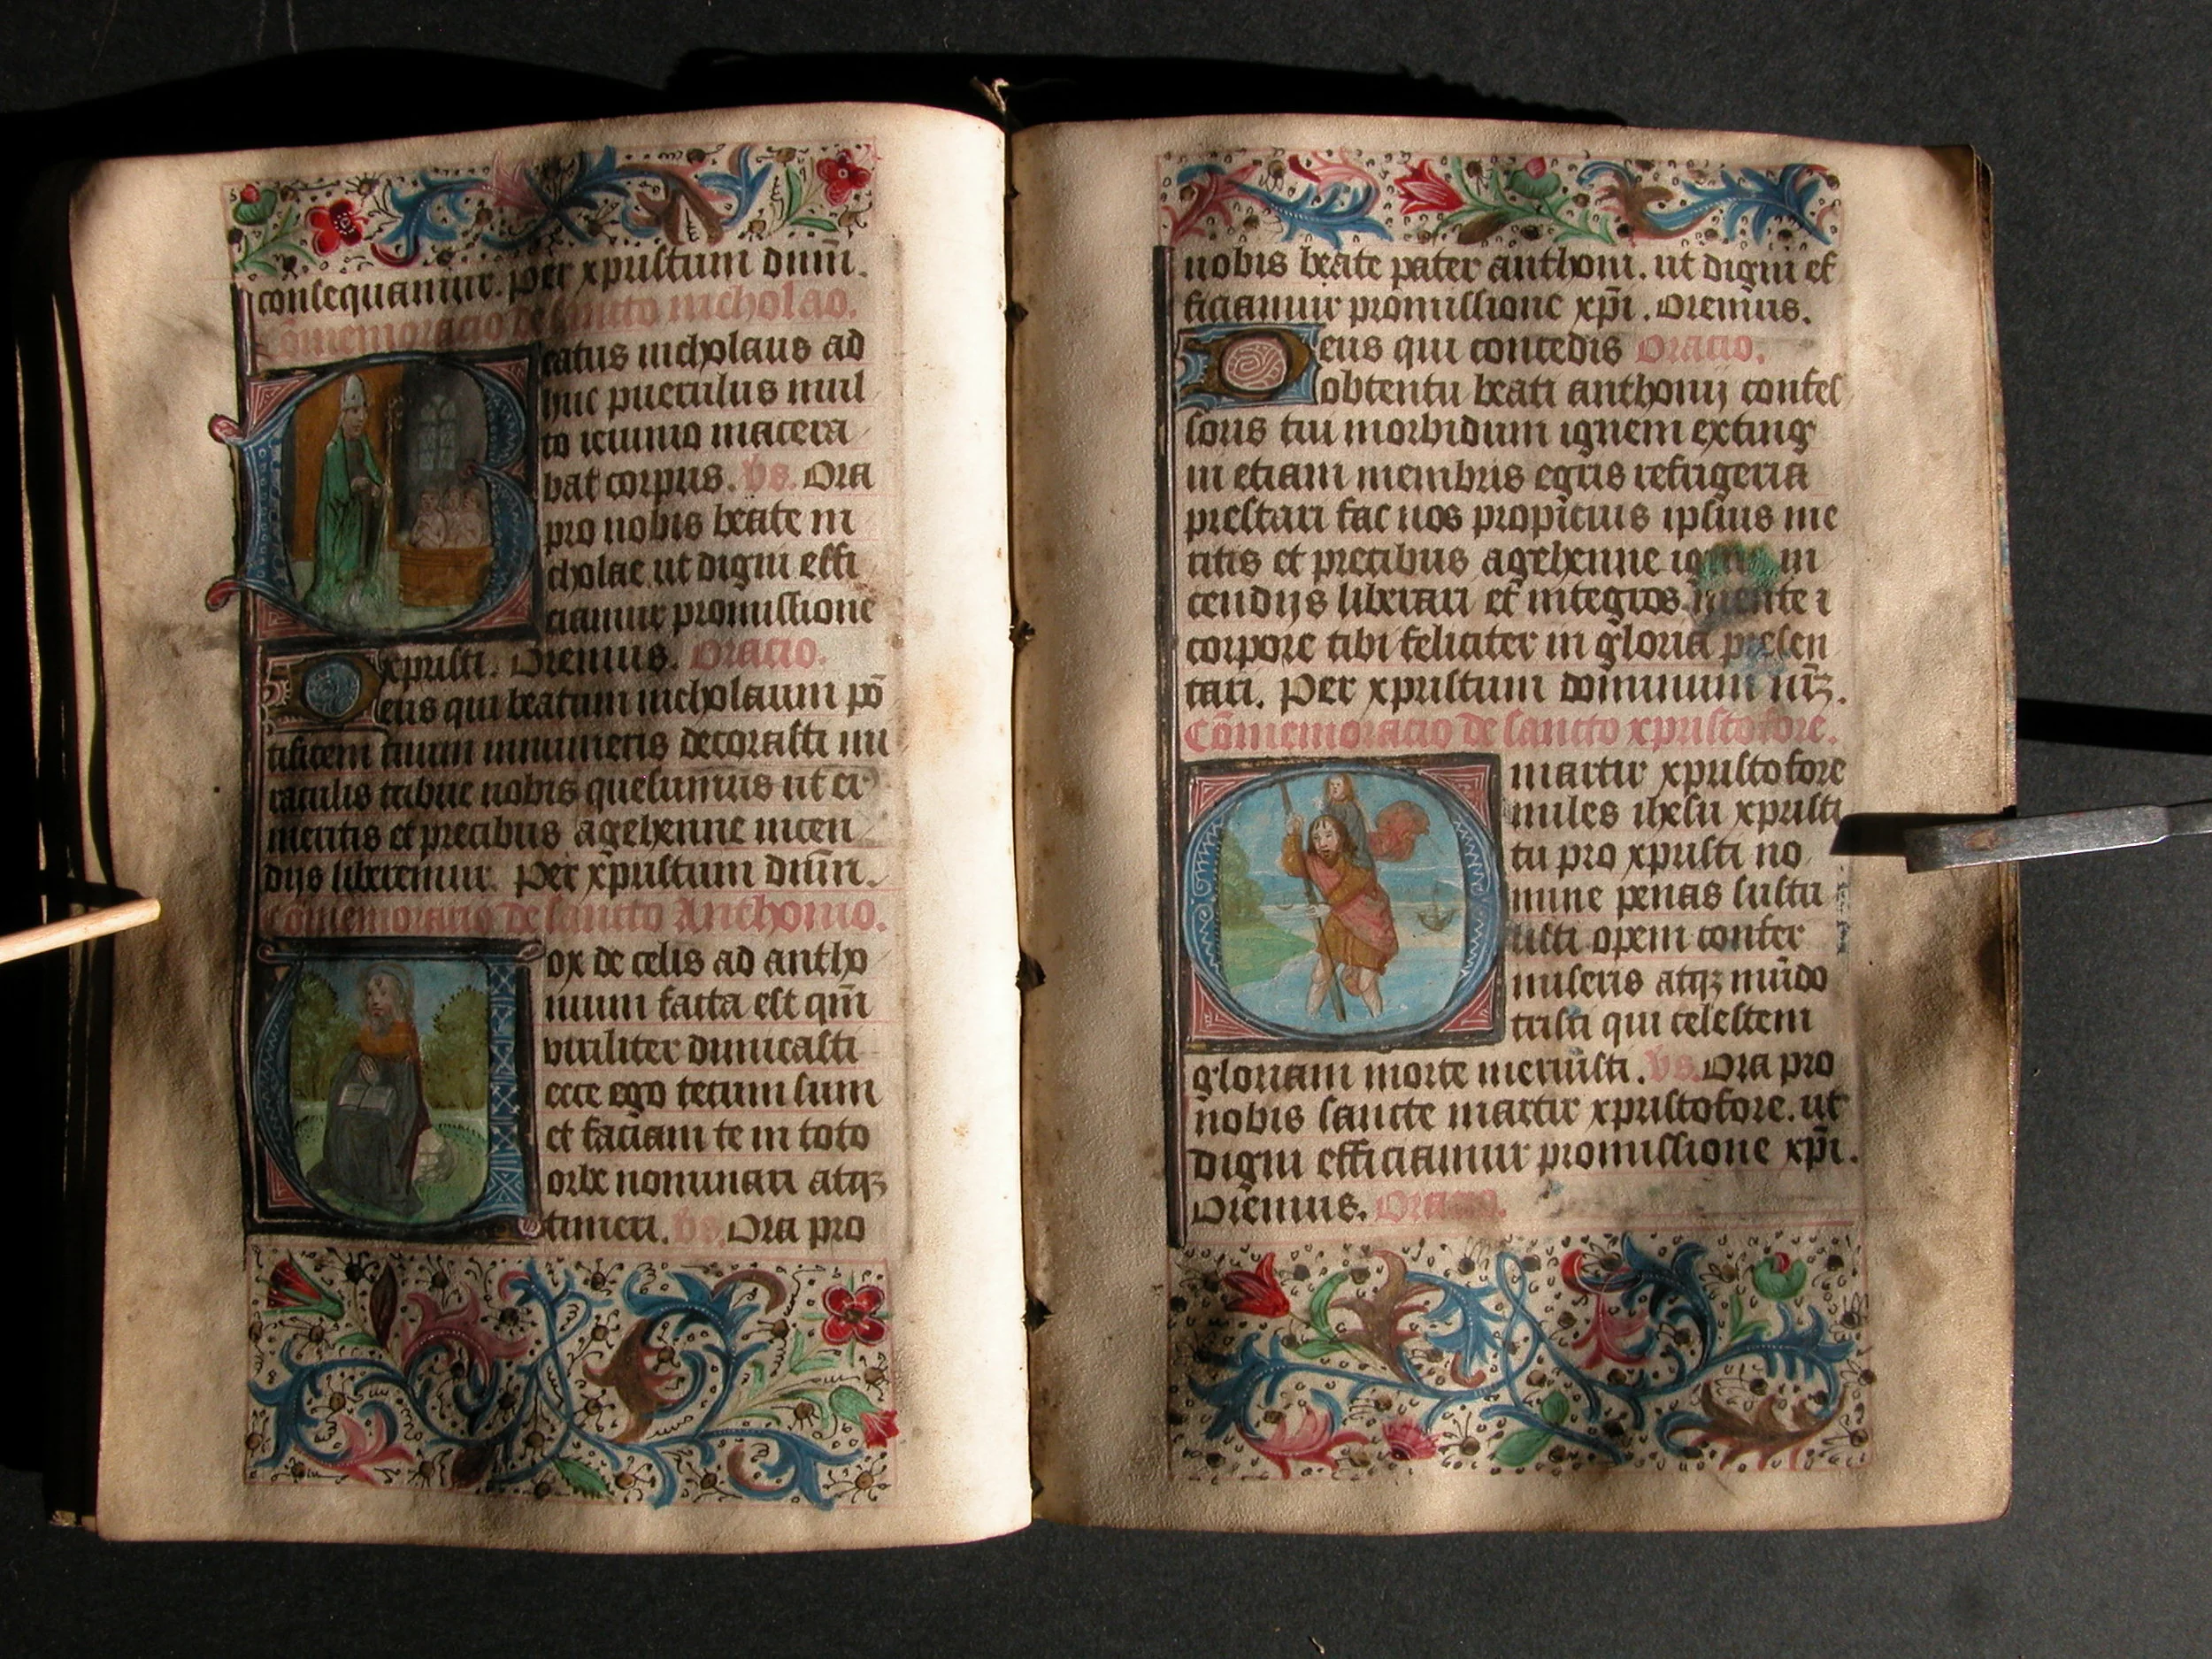 consequamur. Per xpristum dūm̄.
Cōmemoracio de sancto nicholao.
Beatus nicholaus ad
huc puerulus mul
to ieiunio macera
bat corpus. vs. Ora
pro nobis beate ni
cholae ut digni effi
ciamur promissione
xpristi. Oremus. Oracio.
Deus qui beatum nicholaum pō
tificem tuum innumeris decorasti mi
raculis tribue nobis quesumus ut ei
meritis et precibus agehenne incen
dijs liberemur. Per xpristum dūm̄.
Cōmemoracio de sancto Anthonio.
Vox de celis ad antho
nium facta est qm̄
viriliter dimicasti
ecce ego tecum sum
et faciam te in toto
orbe nominari atqꝫ
timeri. vs. Ora pro
nobis beate pater anthoni. ut digni ef
ficiamur promissione xp̄i. Oremus.
Deus qui concedis Oracio.
obtentu beati anthonij confes
soris tui morbidum ignem exting
in etiam membris egris refrigeria
prestari fac nos propicius ipsius me
ritis et precibus agehenne ignis in
cendijs liberari et integros mente i
corpore tibi feliciter in gloria presen
tari. Per xpristum dominum nr̄ꝫ.
Cōmemoracio de sancto xpristofore.
O martir xpristofore
miles ihesu xpristi
tu pro xpristi no
mine penas sustu
listi opem confer
miseris atqꝫ mūdo
tristi qui celestem
gloriam morte meruisti. vs. Ora pro
nobis sancte martir xpristofore. ut
digni efficiamur promissione xp̄i.
Oremus. Oracio.